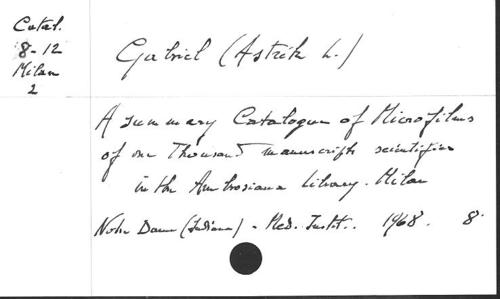 Catal.
8-12
Milan
2
Gabriel (Astrik L.)
A summary Catalogue of Microfilms
of one Thousand manuscripts scientifics
in the Ambrosiana Library. Milan
Notre Dame (Indiana) - Med. Instit.. 1968. 8°